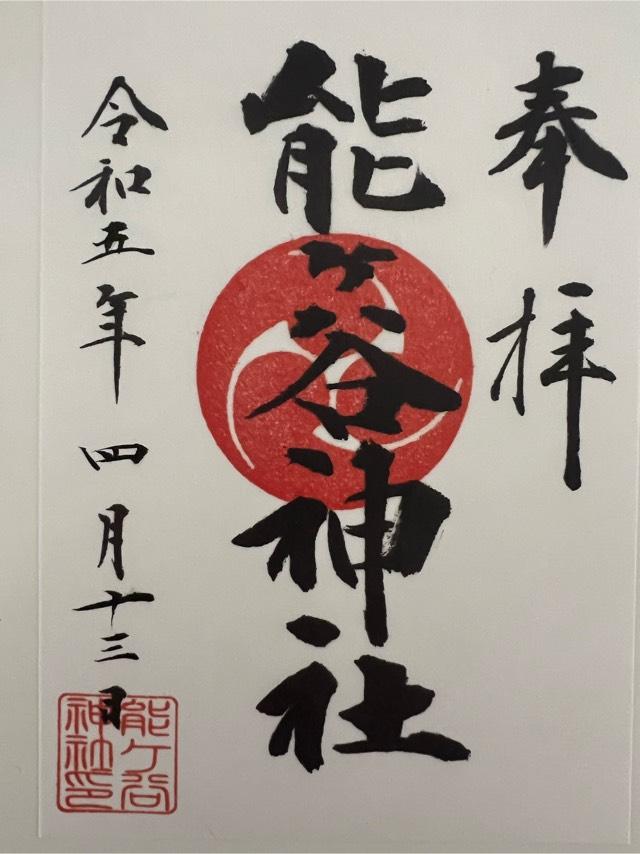 奉拝
能ヶ谷神社
令和五年四月十三日
能ヶ谷
神社印